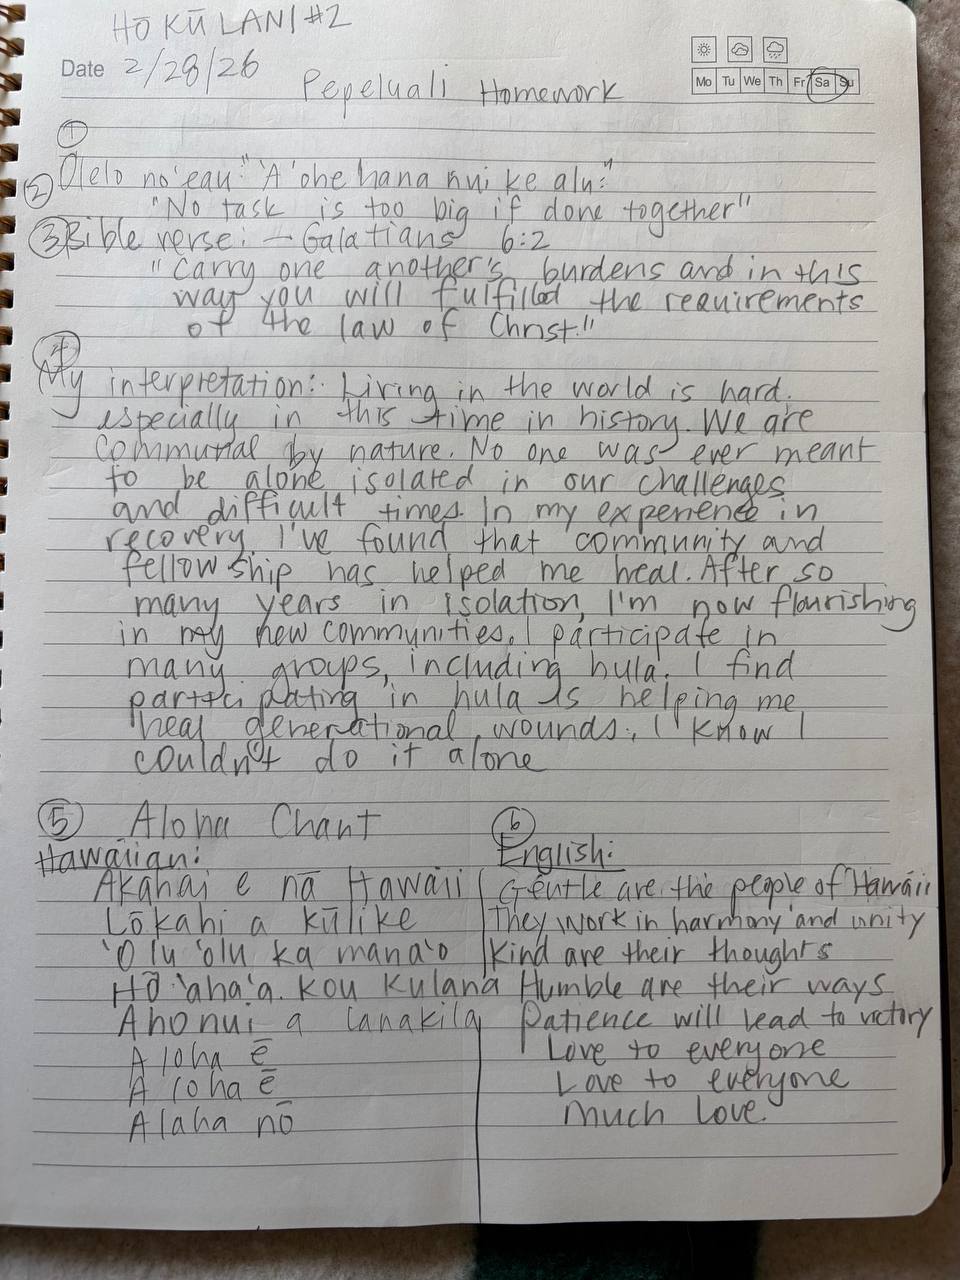 HŌ KŪ LANI #2
Date 2/28/26
Mo Tu We Th Fr Sa Su
Pepeluali Homework
①
② Ōlelo no'eau: "'A'ohe hana nui ke alu:"
"No task is too big if done together"
③ Bible verse: – Galatians 6:2
"Carry one another's burdens and in this
way you will fulfilled the requirements
of the law of Christ."
④
My interpretation: Living in the world is hard.
especially in this time in history. We are
communal by nature. No one was ever meant
to be alone isolated in our challenges
and difficult times. In my experience in
recovery, I've found that community and
fellowship has helped me heal. After so
many years in isolation, I'm now flourishing
in my new communities. I participate in
many groups, including hula. I find
participating in hula is helping me
heal generational wounds. I know I
couldn't do it alone
⑤ Aloha Chant
Hawaiian:
Akahai e nā Hawaii
Lōkahi a kūlike
'Olu 'olu ka mana'o
Hō 'aha'a. kou kulana
Ahonui a lanakila
Aloha ē
Aloha ē
Alaha nō
⑥
English:
Gentle are the people of Hawáii
They work in harmony and unity
Kind are their thoughts
Humble are their ways
Patience will lead to victory
Love to everyone
Love to everyone
Much love.